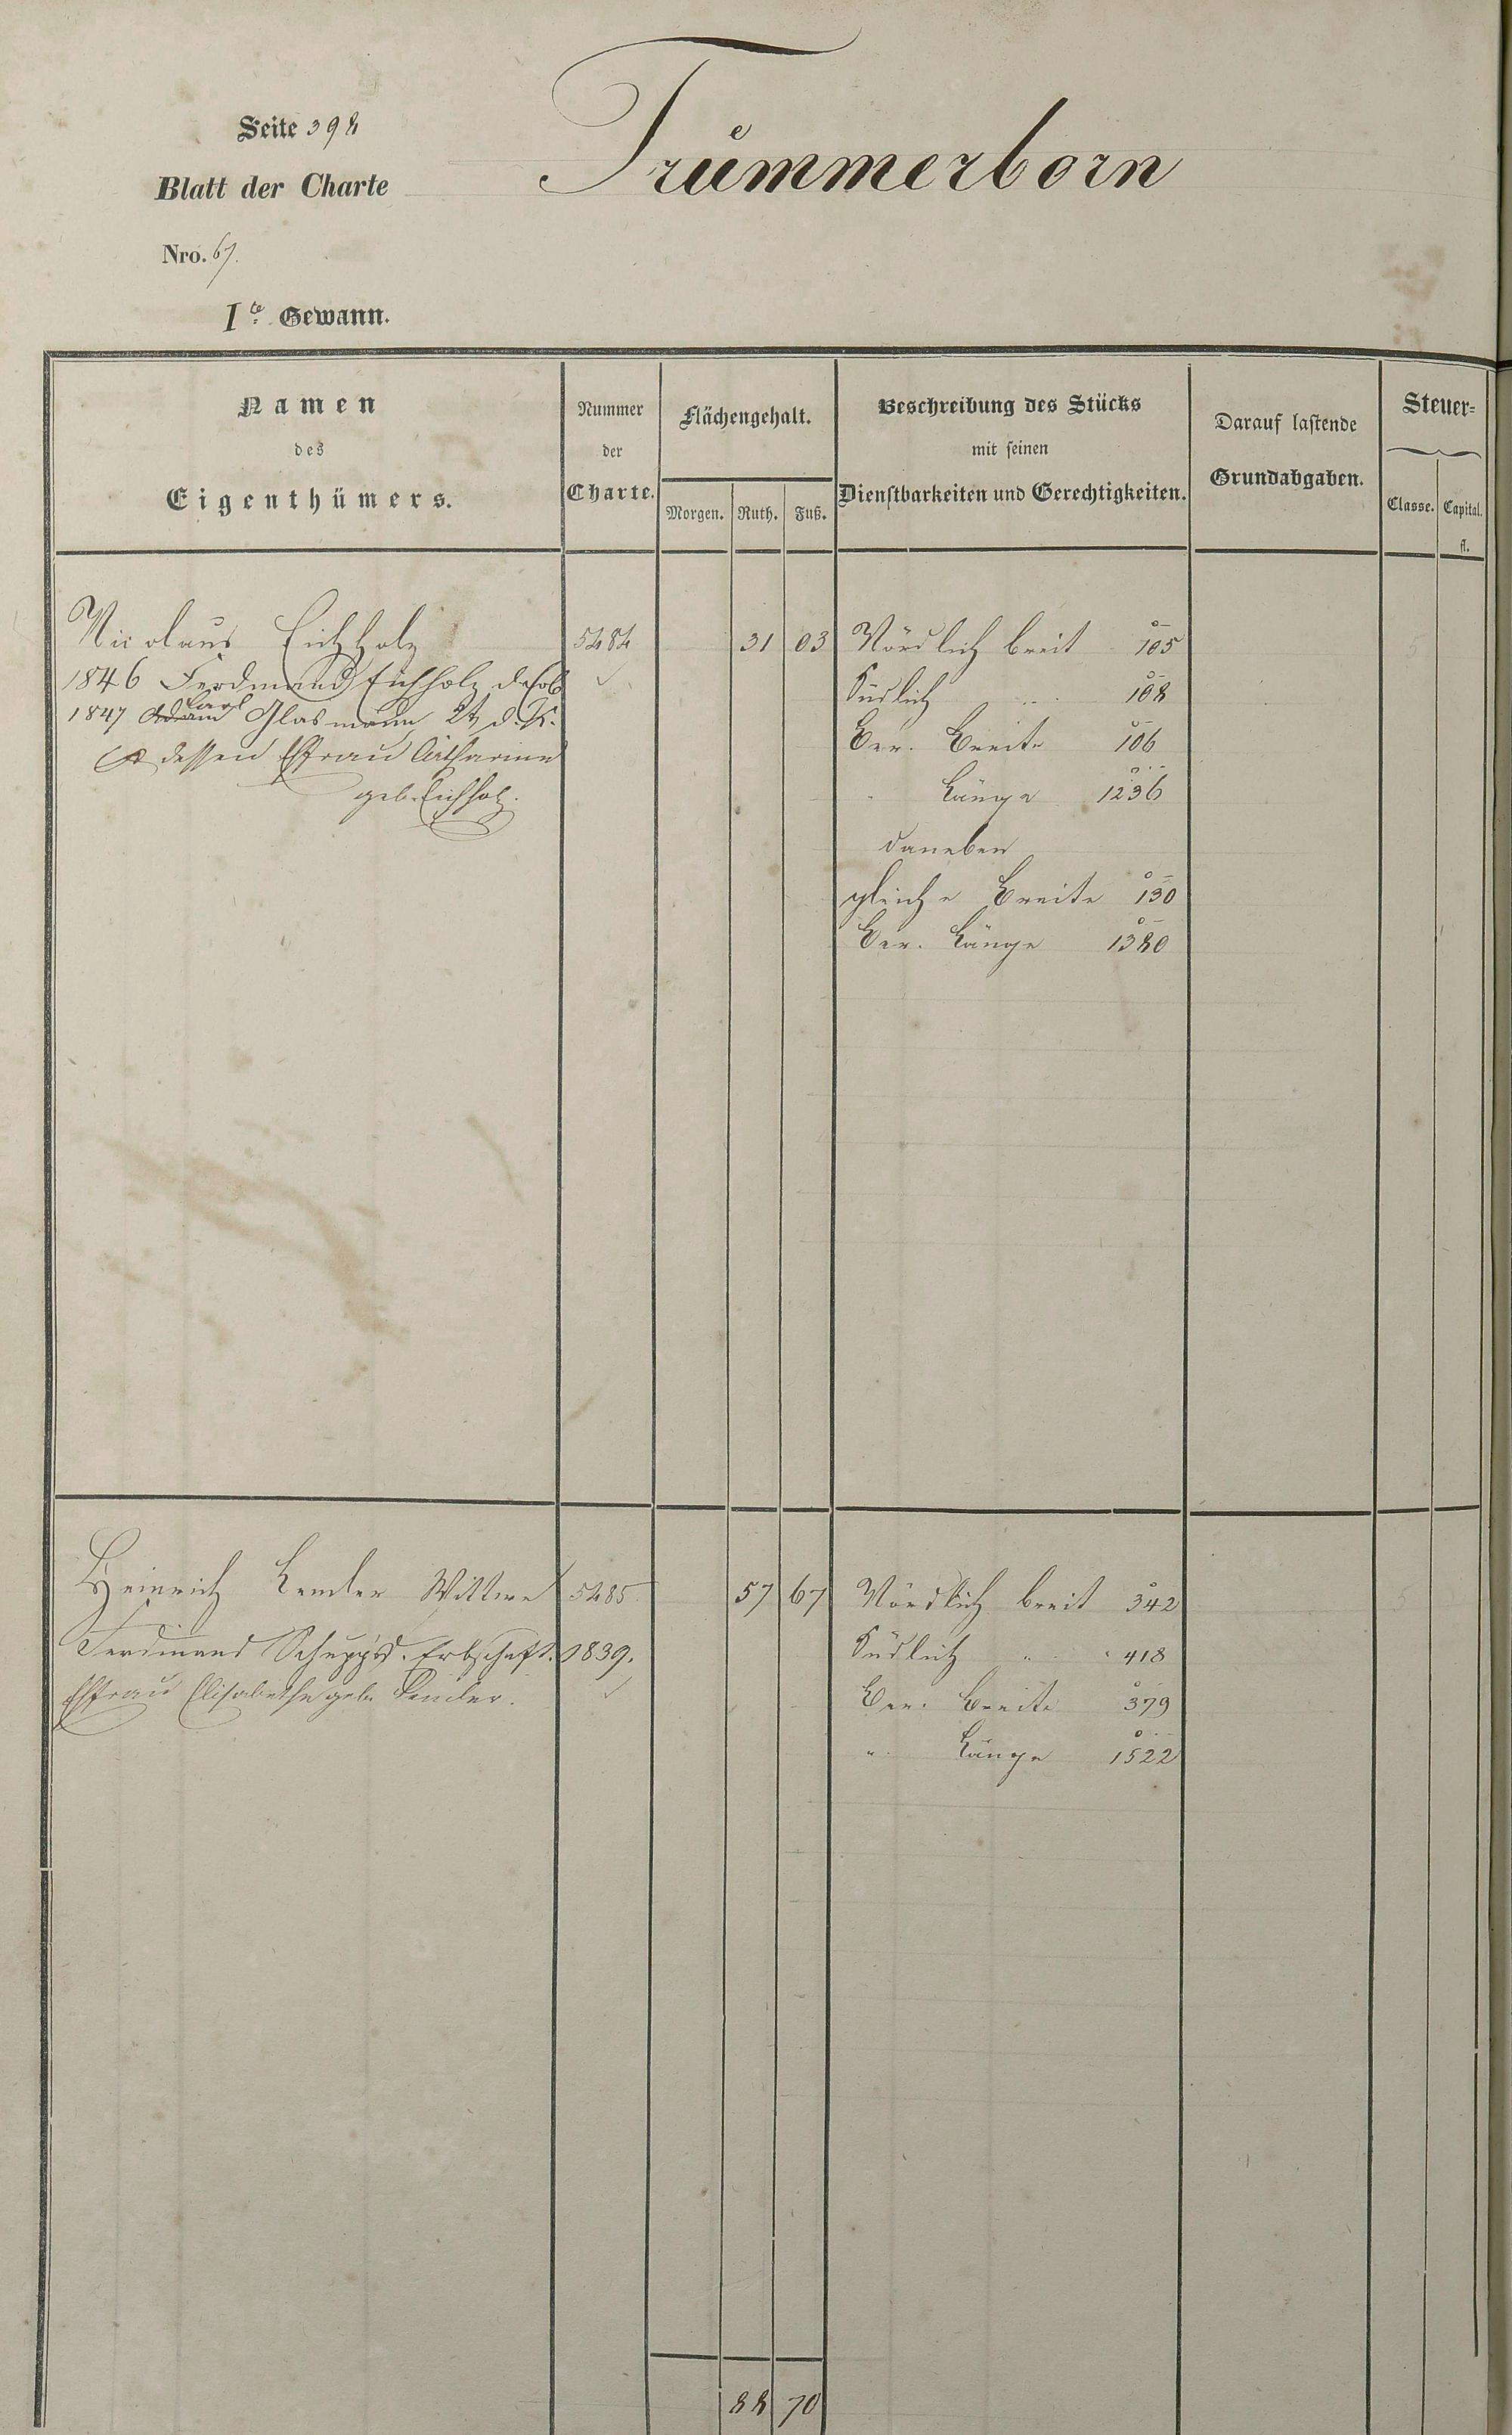 Seite 398
Trümmerborn
Blatt der Charte
Nro. 67.
Ite Gewann.
Namen
des
Eigenthümers.
Nummer
der
Charte.
Flächengehalt.
Morgen. Ruth. Fuß.
Beschreibung des Stücks
mit seinen
Dienstbarkeiten und Gerechtigkeiten.
Darauf lastende
Grundabgaben.
Steuer=
Classe. Capital.
fl.
Nicolaus Eichholz 5484 31 03 Nördlich breit 105
1846 Ferdinand Eichholz Südlich 108
Carl
1847 Adam Glasmann 2t d. K. Ber. Breite 106
& dessen Ehfrau Catharine " Länge 1236
geb. Eichholz.
daneben
gleiche Breite 130
Ber. Länge 1380
Heinrich Lender Wittwe 5485 57 67 Nördlich breit 342
Ferdinand Schupp's d. Erbschaft. 1839. Südlich " 418
Ehfrau Elisabethe geb. Lender. Ber. Breite 379
" Länge 1522
88 70